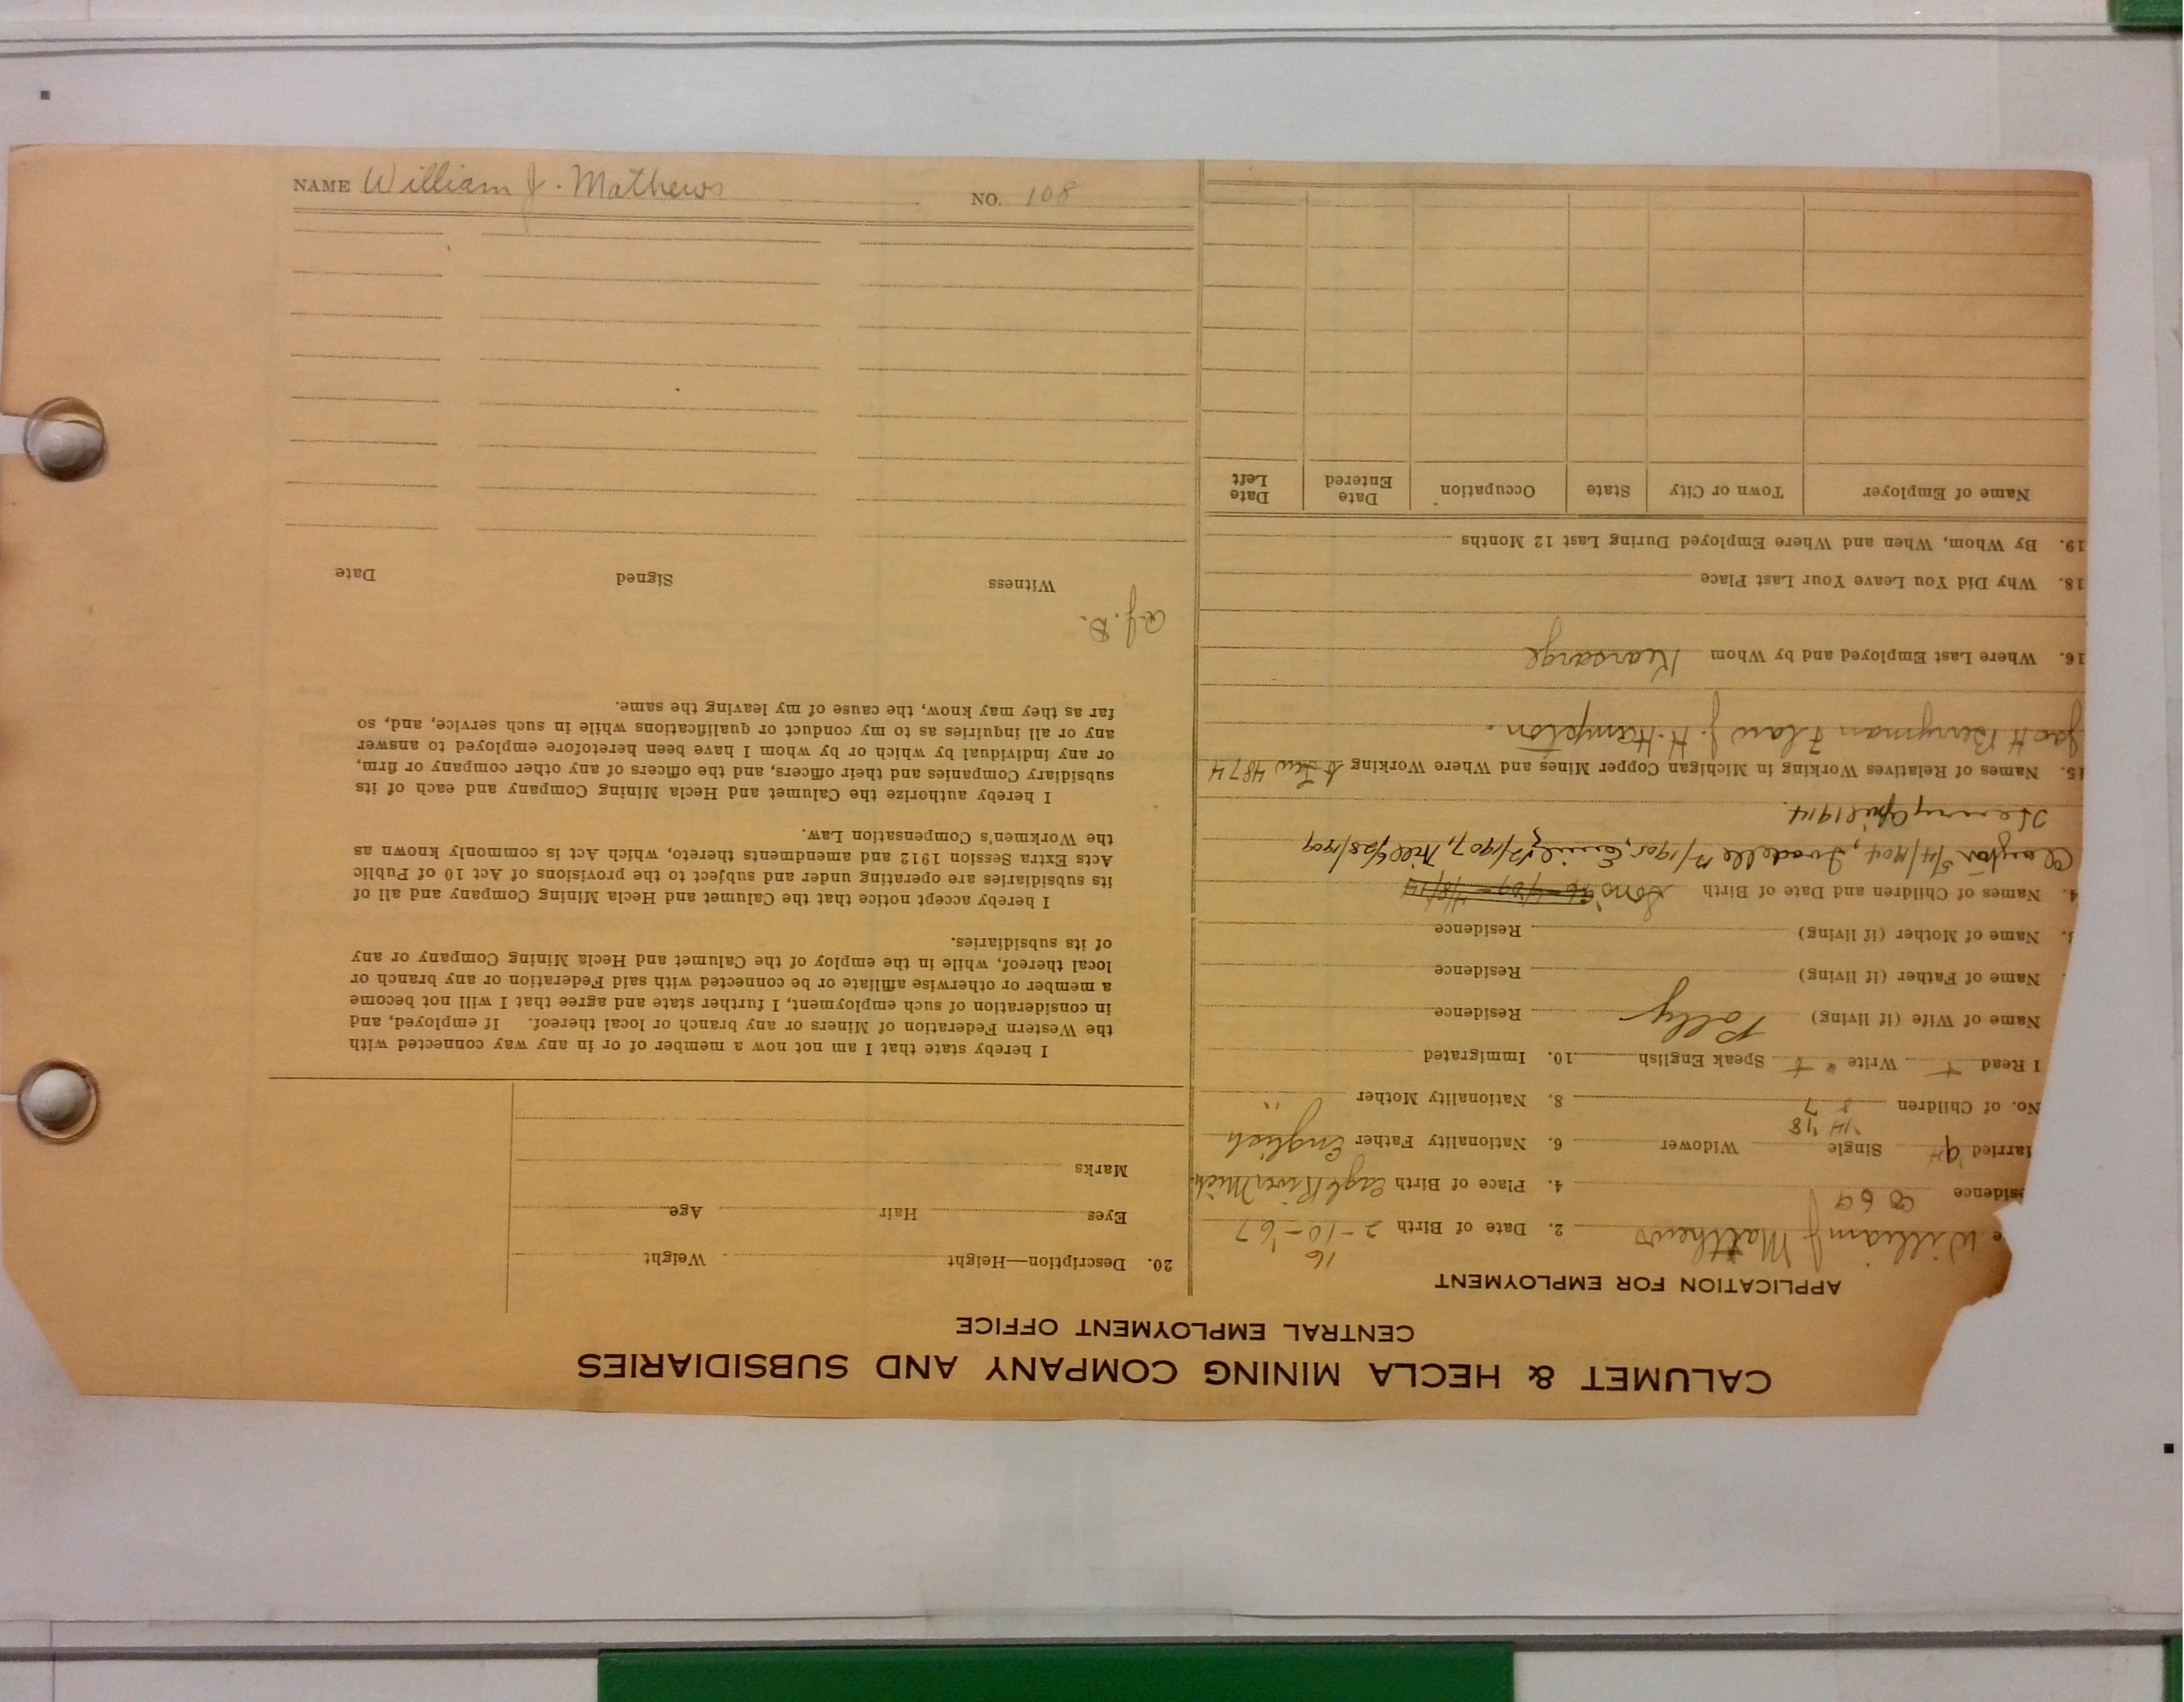 CALUMET & HECLA MINING COMPANY AND SUBSIDIARIES
CENTRAL EMPLOYMENT OFFICE
APPLICATION FOR EMPLOYMENT
e William J Matthews 2. Date of Birth 2-10-67
16
sidence 2. 4. Place of Birth Eagle River Mich.
arried 94 Single Widower 6. Nationality Father English
'14 '18
No. of Children 7 8. Nationality Mother "
I Read + Write + Speak English 10. Immigrated
Name of Wife (if living) Polly Residence
Name of Father (if living) Residence
3. Name of Mother (if living) Residence
4. Names of Children and Date of Birth Sons
Clayton 5/4/1904, 1905, Emil 1907, 1909
Henry April 1914.
15. Names of Relatives Working in Michigan Copper Mines and Where Working 4874
Jas H Berryman J. H. Hampton.
16. Where Last Employed and by Whom Kearsarge
18. Why Did You Leave Your Last Place
19. By Whom, When and Where Employed During Last 12 Months
Name of Employer Town or City State Occupation Date Entered Date Left
20. Description—Height Weight
Eyes Hair Age
Marks
I hereby state that I am not now a member of or in any way connected with
the Western Federation of Miners or any branch or local thereof. If employed, and
in consideration of such employment, I further state and agree that I will not become
a member or otherwise affiliate or be connected with said Federation or any branch or
local thereof, while in the employ of the Calumet and Hecla Mining Company or any
of its subsidiaries.
I hereby accept notice that the Calumet and Hecla Mining Company and all of
its subsidiaries are operating under and subject to the provisions of Act 10 of Public
Acts Extra Session 1912 and amendments thereto, which Act is commonly known as
the Workmen's Compensation Law.
I hereby authorize the Calumet and Hecla Mining Company and each of its
subsidiary Companies and their officers, and the officers of any other company or firm,
or any individual by which or by whom I have been heretofore employed to answer
any or all inquiries as to my conduct or qualifications while in such service, and, so
far as they may know, the cause of my leaving the same.
Witness Signed Date
NAME William J. Mathews NO. 108